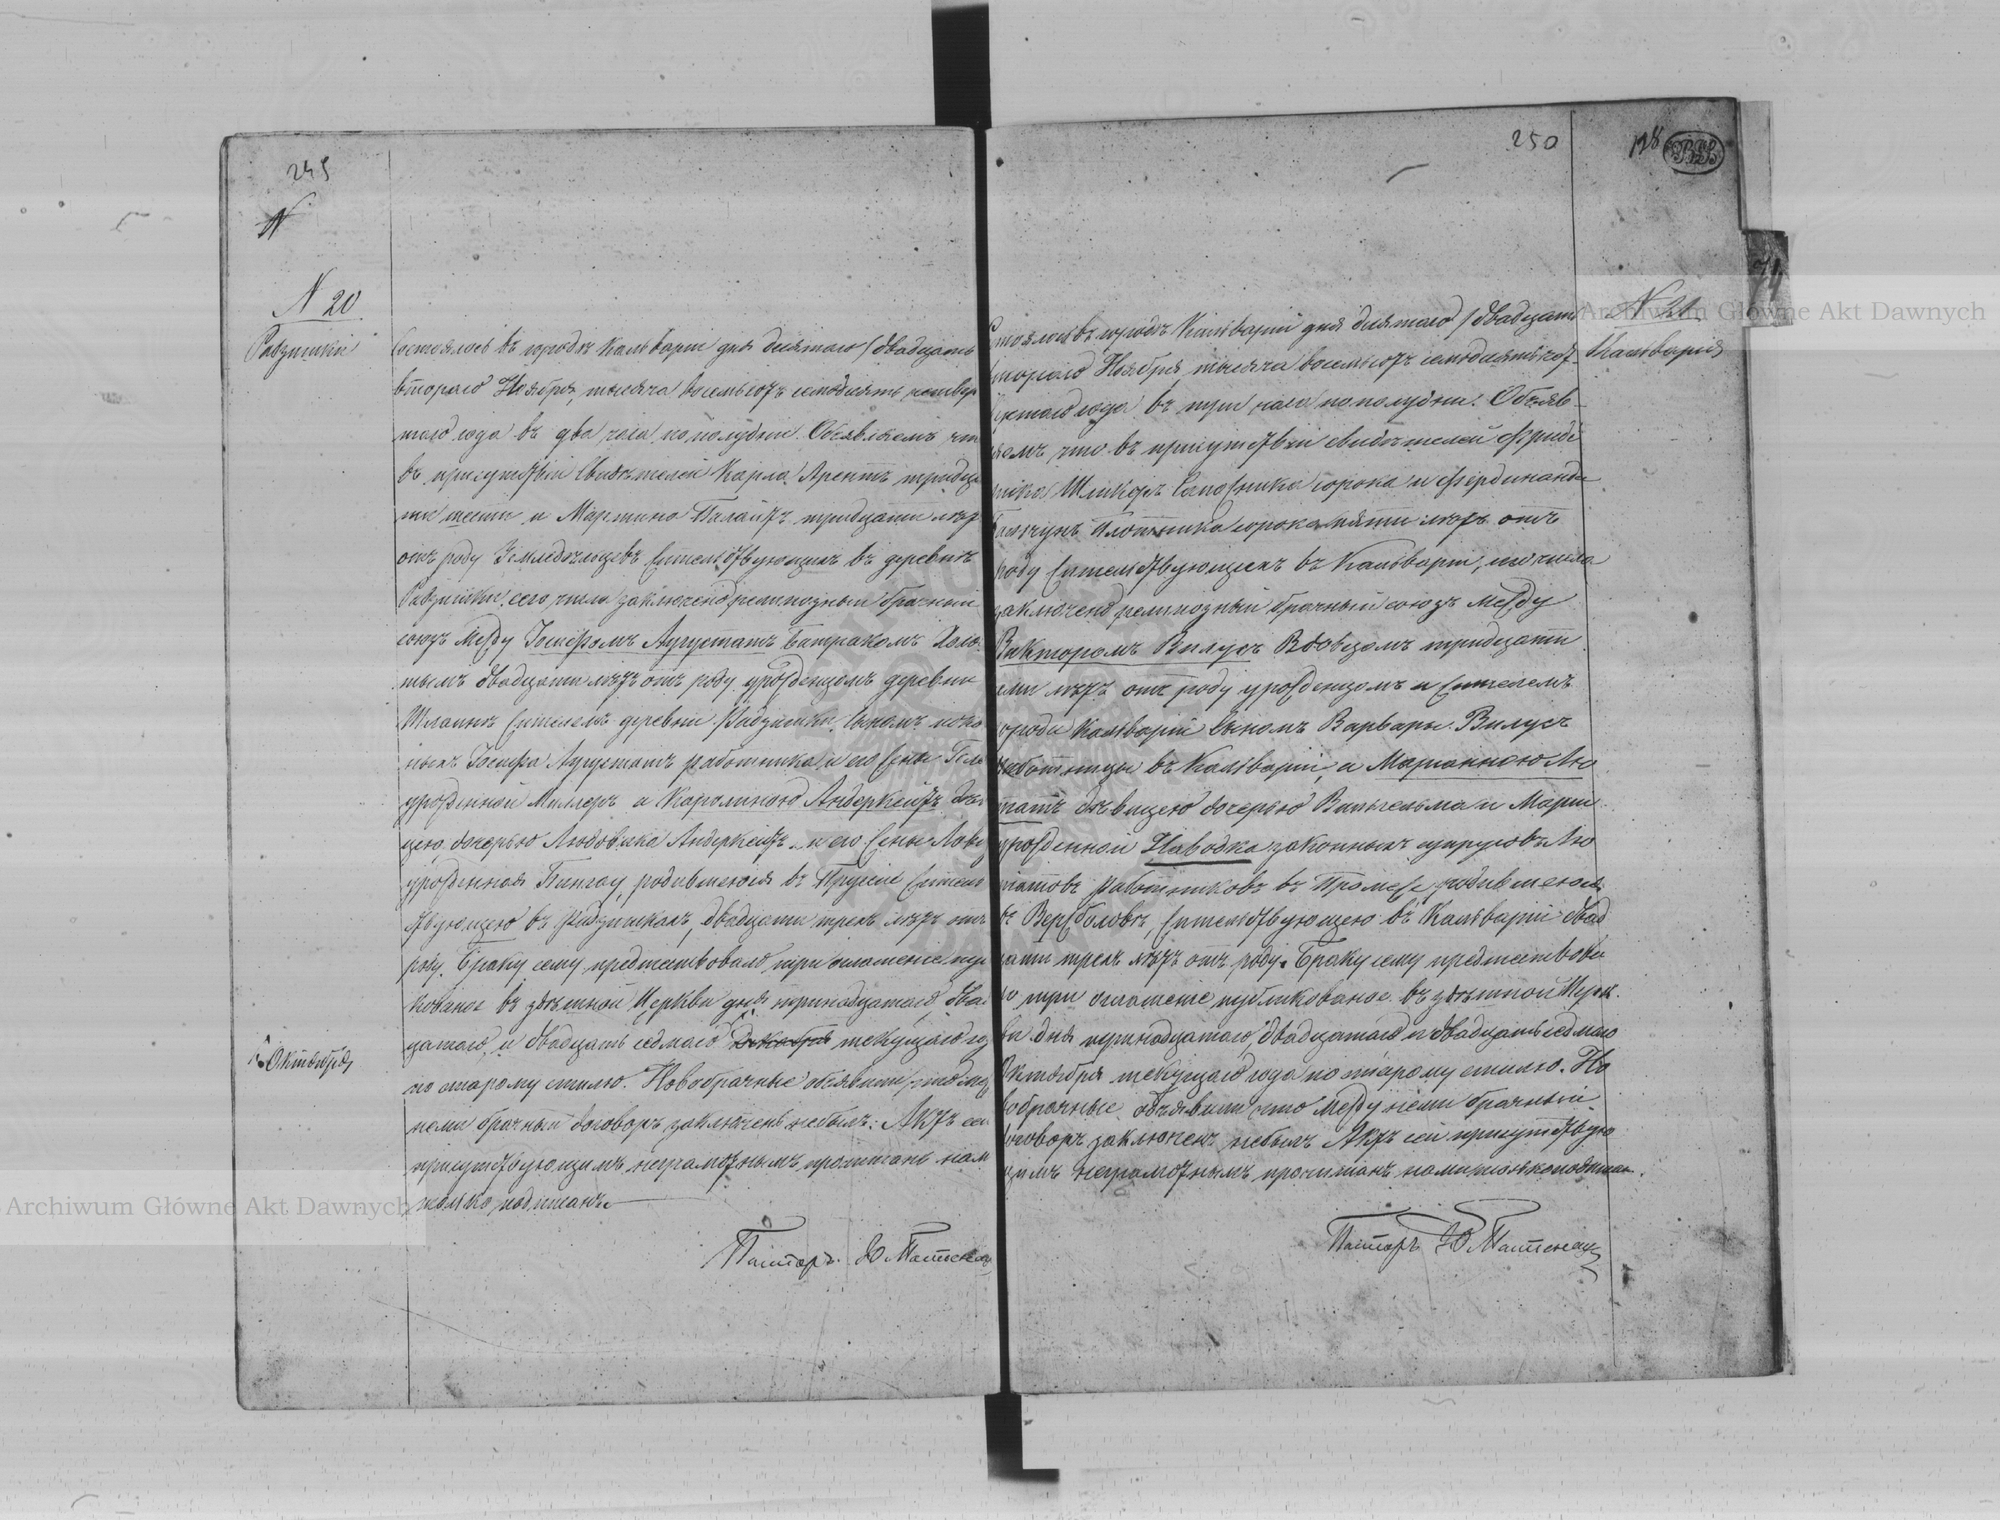 245
N
N 20
Радзишки
Состоялось въ городѣ Кальваріи дня девятаго (двадцать
втораго Ноября, тысяча восемьсотъ семдесятъ четвер
таго года въ два часа по полудни. Объявляемъ что
въ присутствіи Свидѣтелей Карла Арентъ тридца
ти шести и Мартина Палайтъ тридцати лѣтъ
отъ роду Земледѣльцевъ жительствующихъ въ деревнѣ
Радзишки, сего числа заключенъ религіозный брачный
союзъ между Іосифомъ Аугустатъ Батракомъ Холо
тымъ двадцати лѣтъ отъ роду урожденцемъ деревни
жителемъ деревни Радзишки, сыномъ поко
ныхъ Іосифа Аугустатъ работника и его жены
урожденной Миллеръ и Каролиною Андеркейтъ Дѣ
цею, дочерью Людовика Андеркейтъ и его жены
урожденная родившеюся въ Пруссіи жител
ствующею въ Радзишкахъ, двадцати трехъ лѣтъ отъ
роду. Браку сему предшествовало три оглашеніе пу
кованое въ здѣшной Церкви дня тринадцатаго, два
цатаго, и двадцать седмаго Декабря текущаго го
Октября
по старому стилю. Новобрачные объявили, что ме
ними брачный договоръ заключенъ небылъ. Актъ се
присутствующимъ неграмотнымъ прочитанъ нам
только подписанъ.
Пасторъ Ю
250
128
N 21
Кальварія
стоялось въ городѣ Кальваріи дня девятаго (двадцать
втораго Ноября, тысяча восемьсотъ семьдесятъ чет
вертаго года въ три часа по полудни. Объяв
яемъ, что въ присутствіи Свидѣтелей Фриде
рика Сапожника сорока и Фердинанда
Плотника сорока пяти лѣтъ отъ
роду жительствующихъ въ Кальваріи, сего числа
заключенъ религіозный брачный союзъ между
Викторомъ Вилусъ Вдовцомъ тридцати
лѣтъ отъ роду урожденцомъ и жителемъ
города Кальваріи сыномъ Варвары Вилусъ
работницы въ Кальваріи, и Маріанною Лю
татъ дѣвицею дочерью Вильгельма и Маріи
урожденной Наводка законныхъ супруговъ Лю
татовъ работниковъ въ родившеюся
въ Вержболовѣ, жительствующею въ Кальваріи двад
цати трехъ лѣтъ отъ роду. Браку сему предшествова
ло три оглашеніе публикованое въ здѣшной Церк
ви дня тринадцатаго, двадцатаго и двадцать седмаго
Октября текущаго года по старому стилю. Но
вобрачные объявили что между ними брачный
договоръ заключенъ небылъ Актъ сей присутствую
щимъ неграмотнымъ прочитанъ нами только подписан.
Пасторъ Ю
Archiwum Główne Akt Dawnych
Archiwum Główne Akt Dawnych